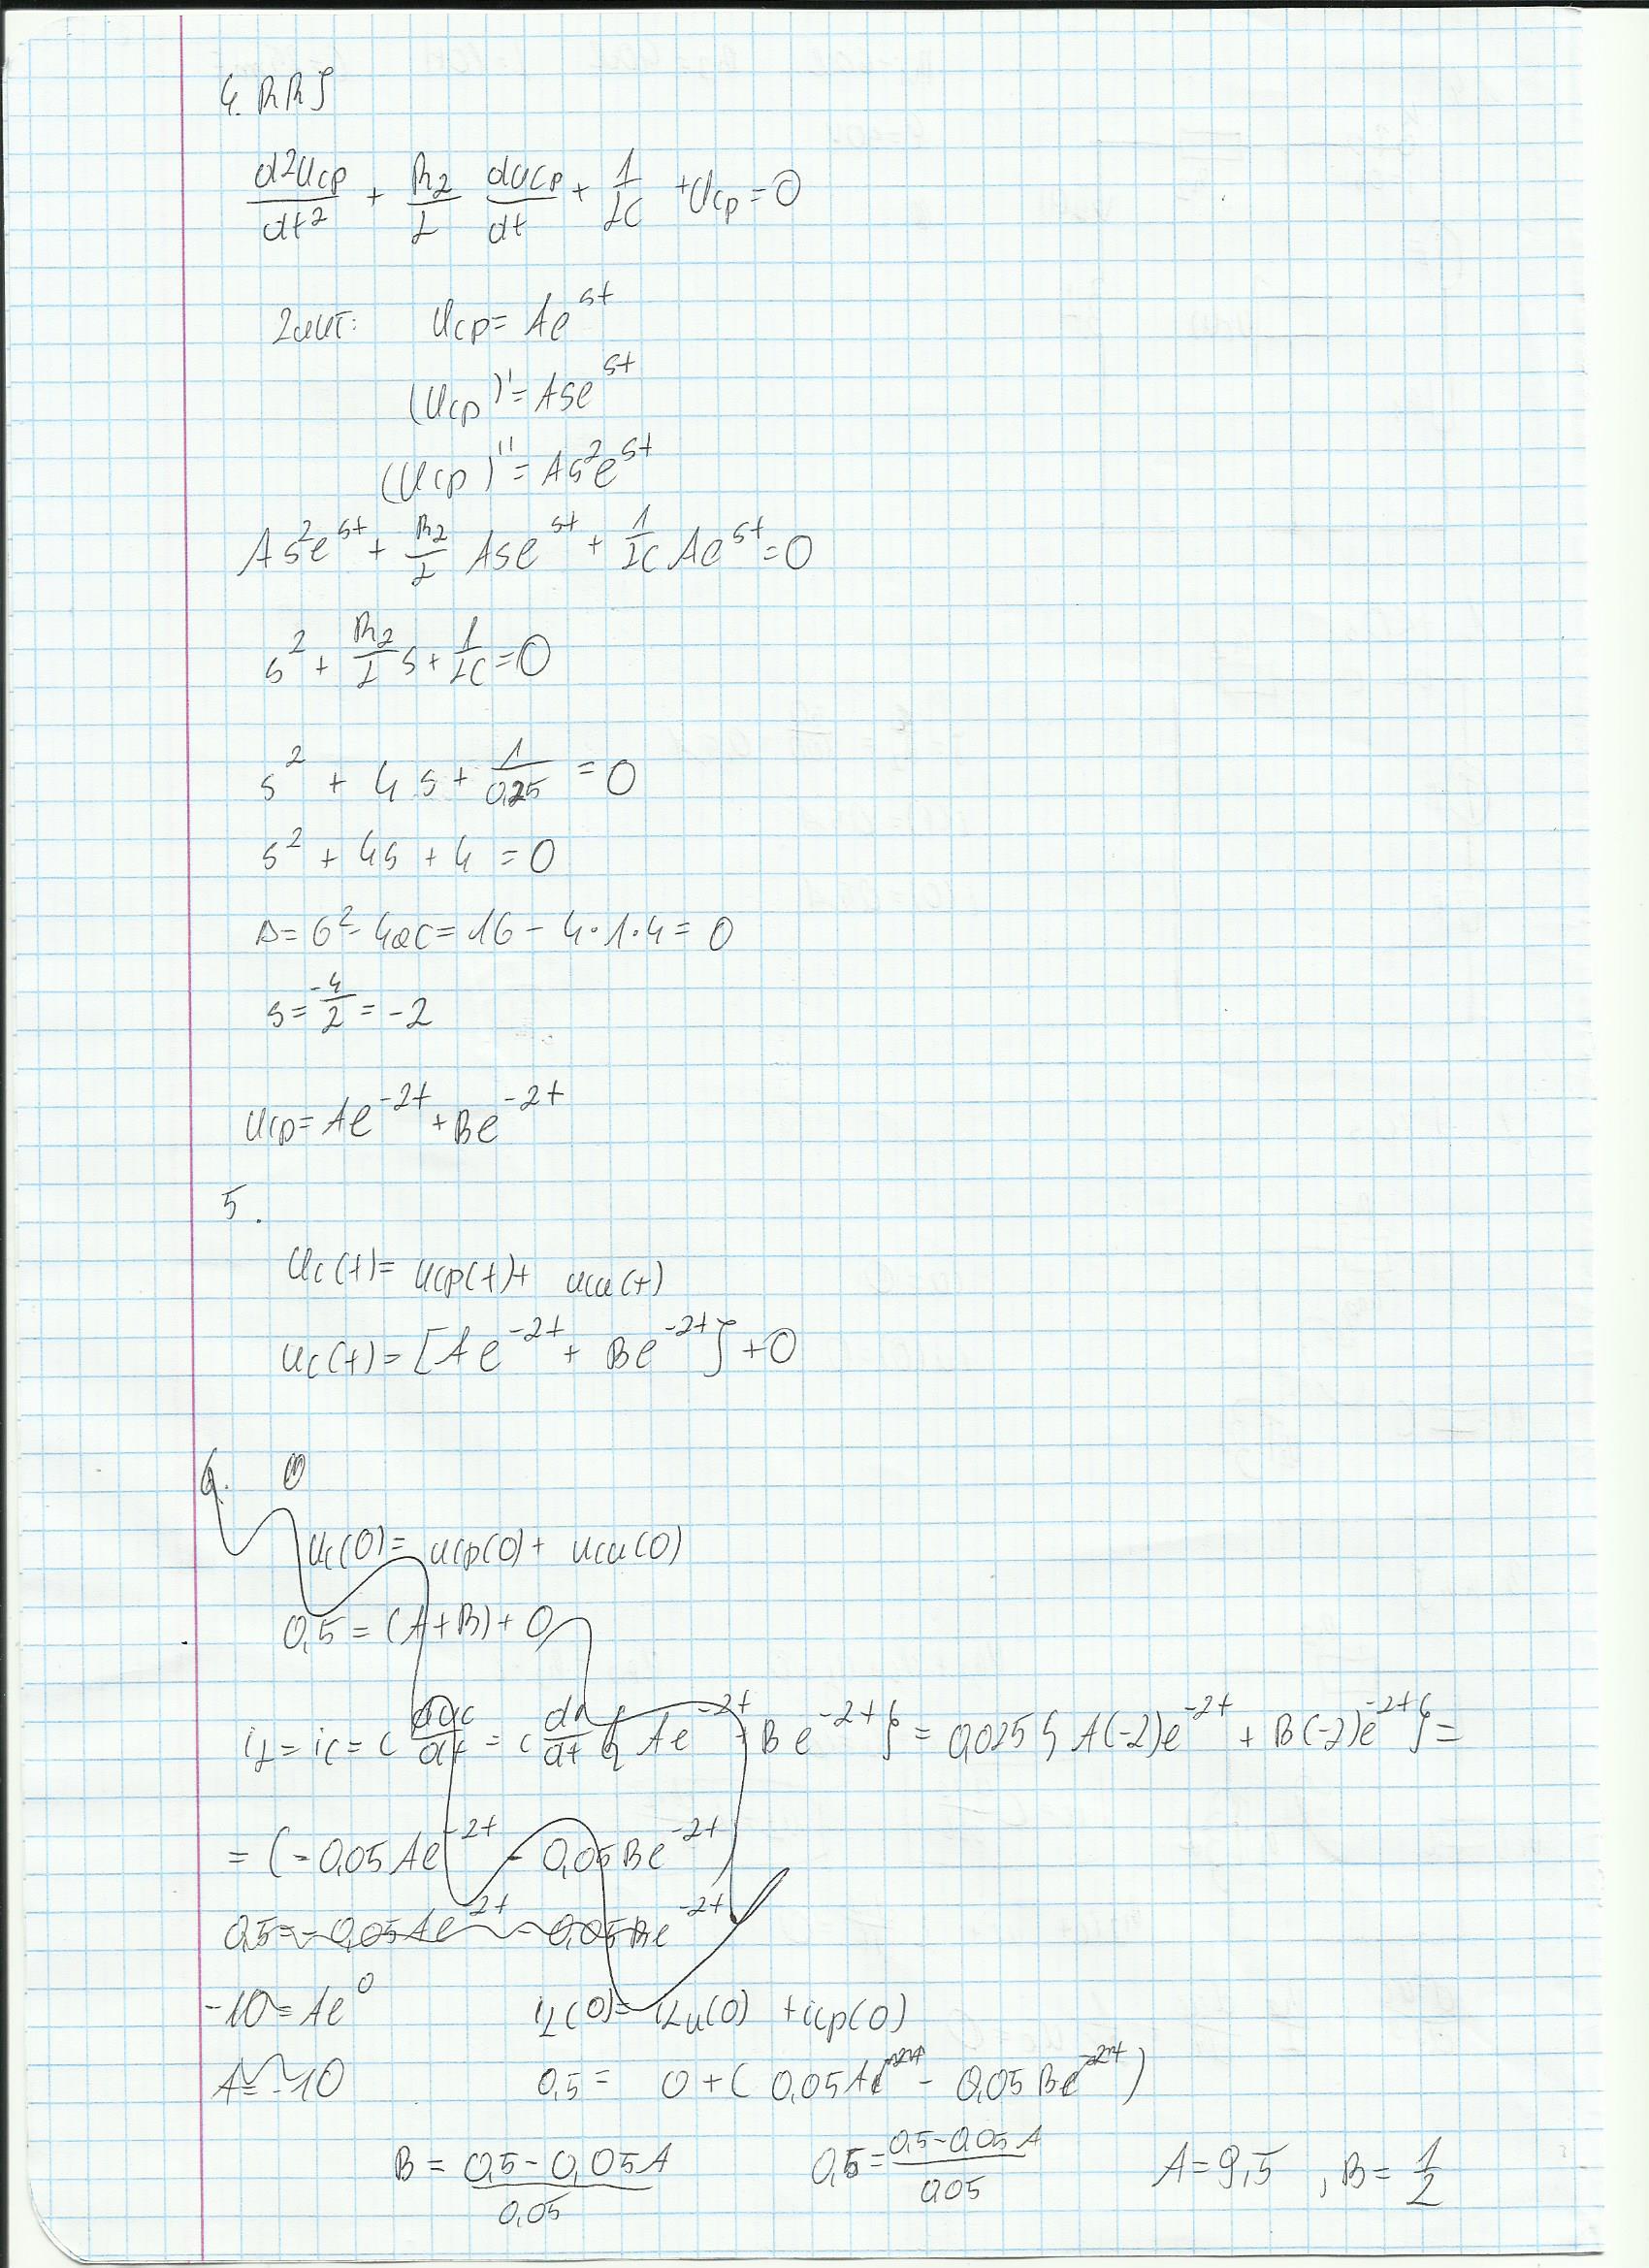 4. RRJ
d²ucp/dt² + R2/L ducp/dt + 1/LC + ucp = 0
ucp = Ae^st
(ucp)' = Ase^st
(ucp)'' = As²e^st
As²e^st + R2/L Ase^st + 1/LC Ae^st = 0
s² + R2/L s + 1/LC = 0
s² + 4s + 1/0,25 = 0
s² + 4s + 4 = 0
Δ = b² - 4ac = 16 - 4·1·4 = 0
s = -4/2 = -2
ucp = Ae^-2t + Be^-2t
5.
uc(t) = ucp(t) + ucu(t)
uc(t) = [Ae^-2t + Be^-2t] + 0
6.
uc(0) = ucp(0) + ucu(0)
0,5 = (A+B) + 0
iL = ic = c duc/dt = c d/dt { Ae^-2t + Be^-2t } = 0,025 { A(-2)e^-2t + B(-2)e^-2t } =
= (-0,05Ae^-2t - 0,05Be^-2t
0,5 = -0,05Ae^-2t - 0,05Be^-2t
-10 = Ae^0 iL(0) = iLu(0) + icp(0)
A = -10 0,5 = 0 + (0,05Ae^-2t - 0,05Be^-2t)
B = 0,5-0,05A/0,05 0,5 = 0,5-0,05A/0,05 A = 9,5 , B = 1/2